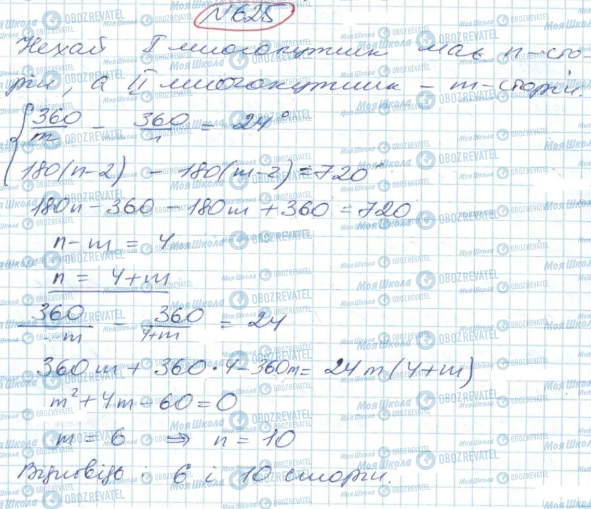 N625
Нехай I многокутник має n-сто-
рін, а II многокутник - m-сторін.
360/m - 360/n = 24°
180(n-2) - 180(m-2) = 720°
180n - 360 - 180m + 360 = 720
n - m = 4
n = 4+m
360/m - 360/4+m = 24
360m + 360·4 - 360m = 24m(4+m)
m² + 4m - 60 = 0
m = 6 ⇒ n = 10
Відповідь: 6 і 10 сторін.
Моя Школа
OBOZREVATEL